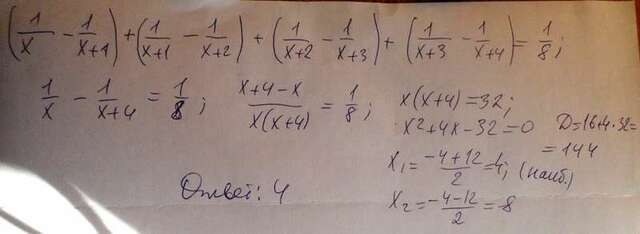 (1/x - 1/x+1) + (1/x+1 - 1/x+2) + (1/x+2 - 1/x+3) + (1/x+3 - 1/x+4) = 1/8;
1/x - 1/x+4 = 1/8; x+4-x/x(x+4) = 1/8; x(x+4)=32;
x²+4x-32=0 D=16+4·32=
=144
x₁=-4+12/2=4; (наиб.)
Ответ: 4
x₂=-4-12/2=-8